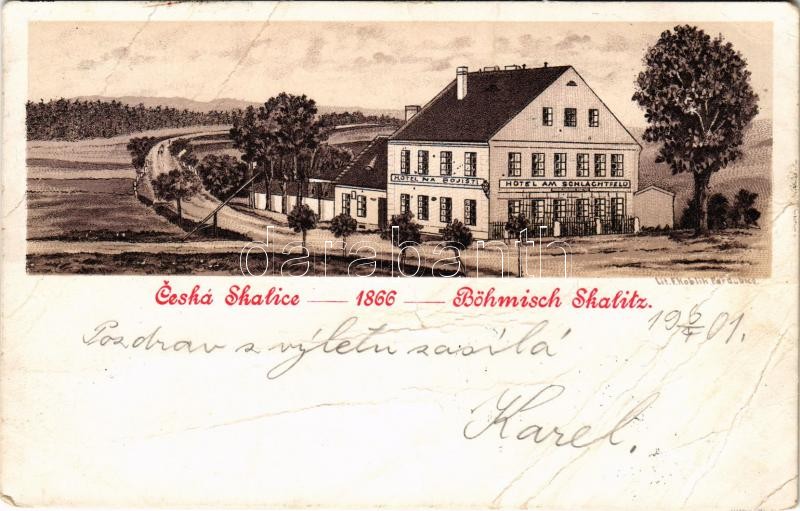 HOTEL NA BOJIŠTI
HOTEL AM SCHLACHTFELD
darabanth
Lit. F. Hoblík Pardubice.
Česká Skalice — 1866 — Böhmisch Skalitz.
19 6/4 01.
Pozdrav z výletu zasílá
Karel.